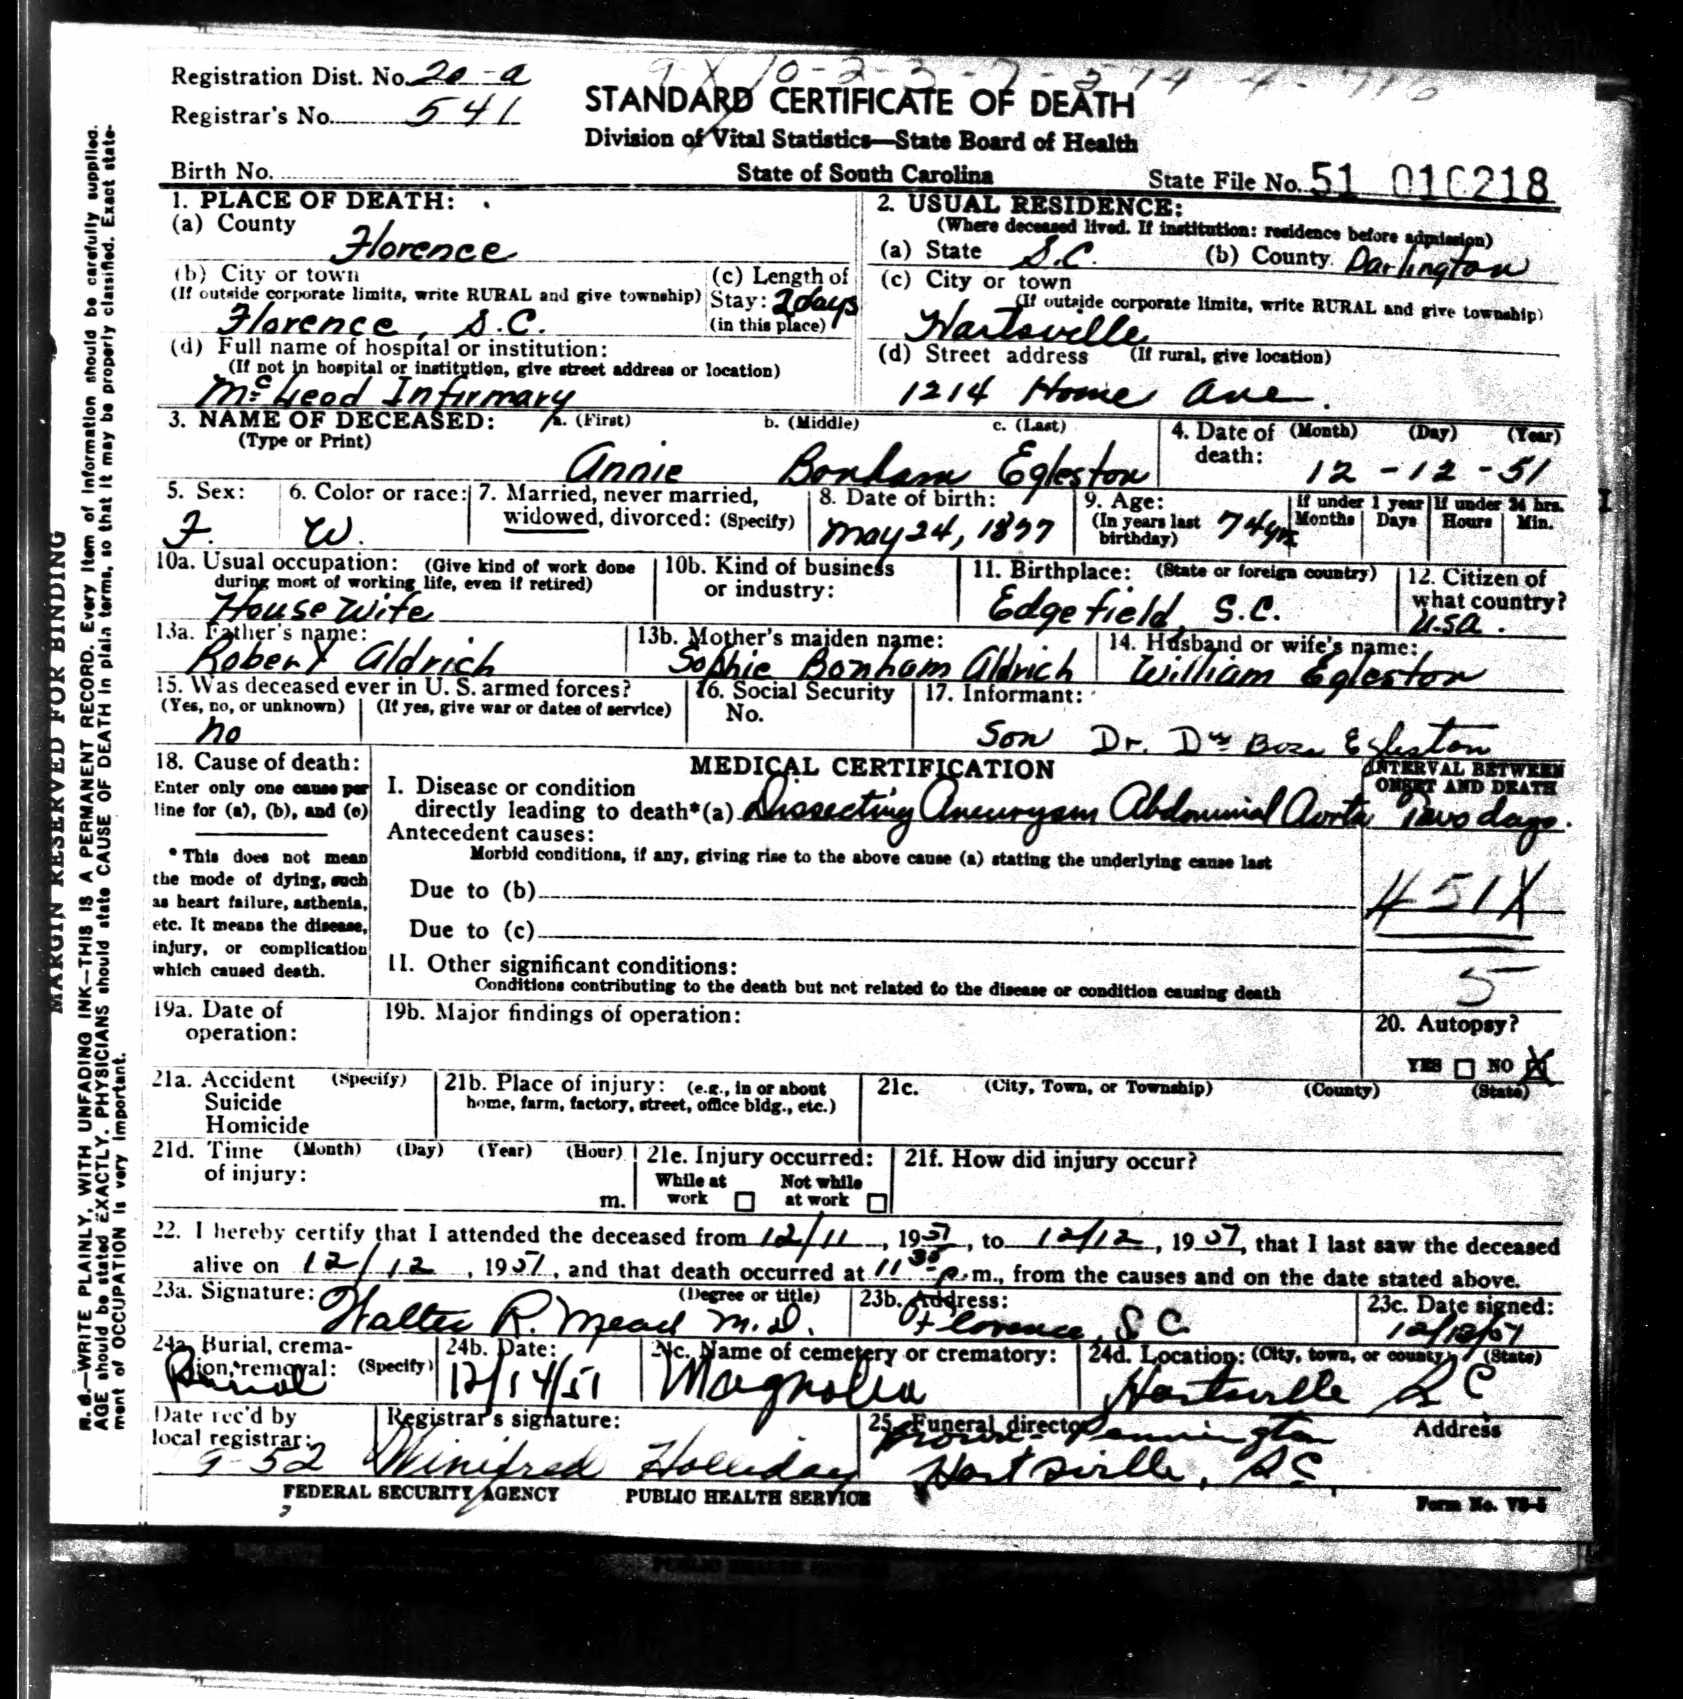 Registration Dist. No. 20-a
Registrar's No. 541
STANDARD CERTIFICATE OF DEATH
Division of Vital Statistics—State Board of Health
Birth No.
State of South Carolina
State File No. 51
1. PLACE OF DEATH:
(a) County
Florence
(b) City or town
(If outside corporate limits, write RURAL and give township)
Florence, S.C.
(c) Length of
Stay: 2 days
(in this place)
(d) Full name of hospital or institution:
(If not in hospital or institution, give street address or location)
McLeod Infirmary
2. USUAL RESIDENCE:
(Where deceased lived. If institution: residence before admission)
(a) State S.C. (b) County. Darlington
(c) City or town
(If outside corporate limits, write RURAL and give township)
Hartsville
(d) Street address (If rural, give location)
1214 Home Ave.
3. NAME OF DECEASED: a. (First) b. (Middle) c. (Last)
(Type or Print)
Annie Bonham Egleston
4. Date of (Month) (Day) (Year)
death: 12-12-51
5. Sex:
F.
6. Color or race:
W.
7. Married, never married,
widowed, divorced: (Specify)
8. Date of birth:
May 24, 1877
9. Age:
(In years last
birthday)
74 yrs
If under 1 year If under 24 hrs.
Months Days Hours Min.
10a. Usual occupation: (Give kind of work done
during most of working life, even if retired)
House Wife
10b. Kind of business
or industry:
11. Birthplace: (State or foreign country)
Edgefield, S.C.
12. Citizen of
what country?
U.S.A.
13a. Father's name:
Robert Aldrich
13b. Mother's maiden name:
Sophie Bonham Aldrich
14. Husband or wife's name:
William Egleston
15. Was deceased ever in U. S. armed forces?
(Yes, no, or unknown) (If yes, give war or dates of service)
no
16. Social Security
No.
17. Informant:
Son Dr. Egleston
18. Cause of death:
Enter only one cause per
line for (a), (b), and (c)
*This does not mean
the mode of dying, such
as heart failure, asthenia,
etc. It means the disease,
injury, or complication
which caused death.
MEDICAL CERTIFICATION
INTERVAL BETWEEN
ONSET AND DEATH
I. Disease or condition
directly leading to death*(a) Dissecting Aneurysm Abdominal Aorta Two days.
Antecedent causes:
Morbid conditions, if any, giving rise to the above cause (a) stating the underlying cause last
Due to (b)
451X
Due to (c)
II. Other significant conditions:
Conditions contributing to the death but not related to the disease or condition causing death
5
19a. Date of
operation:
19b. Major findings of operation:
20. Autopsy?
YES NO X
21a. Accident (Specify)
Suicide
Homicide
21b. Place of injury: (e.g., in or about
home, farm, factory, street, office bldg., etc.)
21c. (City, Town, or Township) (County) (State)
21d. Time (Month) (Day) (Year) (Hour)
of injury: m.
21e. Injury occurred:
While at Not while
work at work
21f. How did injury occur?
22. I hereby certify that I attended the deceased from 12/11, 1951, to 12/12, 1951, that I last saw the deceased
alive on 12/12, 1951, and that death occurred at 11 30 p.m., from the causes and on the date stated above.
23a. Signature: (Degree or title)
Walter R. Mead M.D.
23b. Address:
Florence, S C
23c. Date signed:
24a. Burial, crema-
tion, removal: (Specify)
Burial
24b. Date:
12/14/51
24c. Name of cemetery or crematory:
Magnolia
24d. Location: (City, town, or county) (State)
Hartsville S C
Date rec'd by
local registrar:
9-52
Registrar's signature:
Winifred Holliday
25. Funeral director Address
Brown Pennington
Hartsville, S C
FEDERAL SECURITY AGENCY PUBLIC HEALTH SERVICE
Form No. VS-5
MARGIN RESERVED FOR BINDING
N. B.—WRITE PLAINLY, WITH UNFADING INK—THIS IS A PERMANENT RECORD. Every item of information should be carefully supplied.
AGE should be stated EXACTLY. PHYSICIANS should state CAUSE OF DEATH in plain terms, so that it may be properly classified. Exact state-
ment of OCCUPATION is very important.